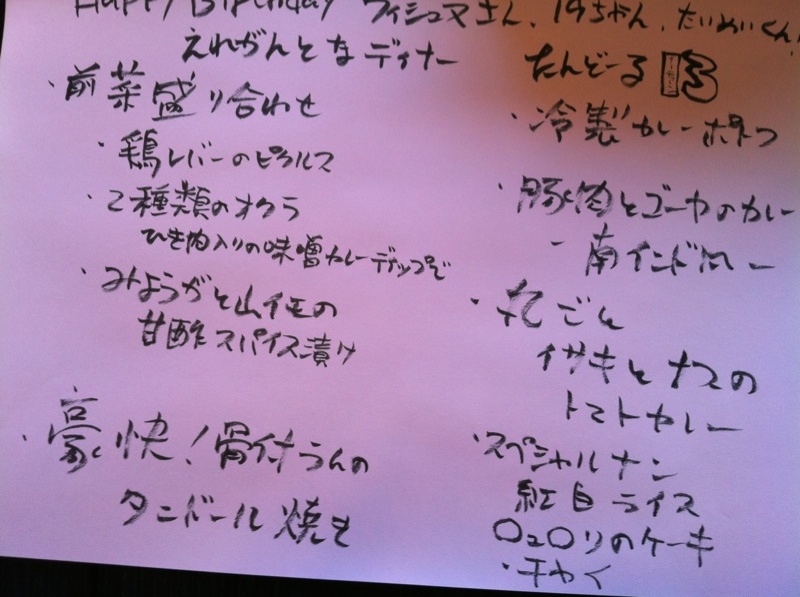 Happy Birthday ヴィシュヌさん、19ちゃん、たいめいくん!
えれがんとなディナー
・前菜盛り合わせ
・鶏レバーのピクルス
・2種類のオクラ
ひき肉入りの味噌カレーディップで
・みょうがと山イモの
甘酢スパイス漬け
・豪快!骨付らむの
タンドール焼き
たんどーる
・冷製カレーポトフ
・豚肉とゴーヤのカレー
南インド
・丸ごと
イサキとナスの
トマトカレー
・スペシャルナン
紅白ライス
のケーキ
・チャイ